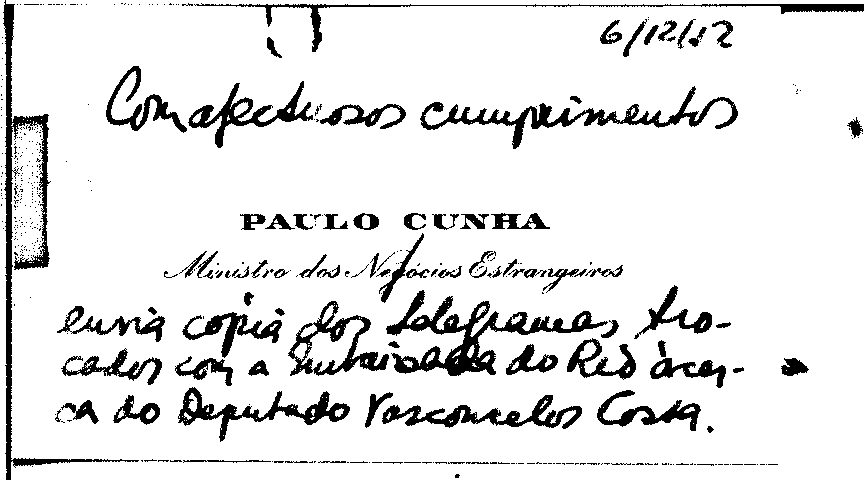 6/12/52
Com afectuosos cumprimentos
PAULO CUNHA
Ministro dos Negócios Estrangeiros
envia copia dos telegramas tro-
cados com a Embaixada do Rio àcer-
ca do Deputado Vasconcelos Costa.